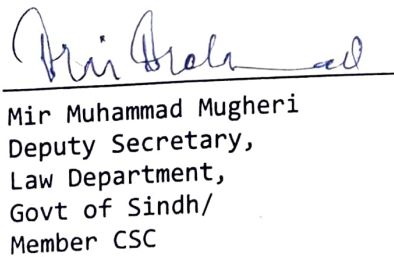 Mir Muhammad Mugheri
Deputy Secretary,
Law Department,
Govt of Sindh/
Member CSC